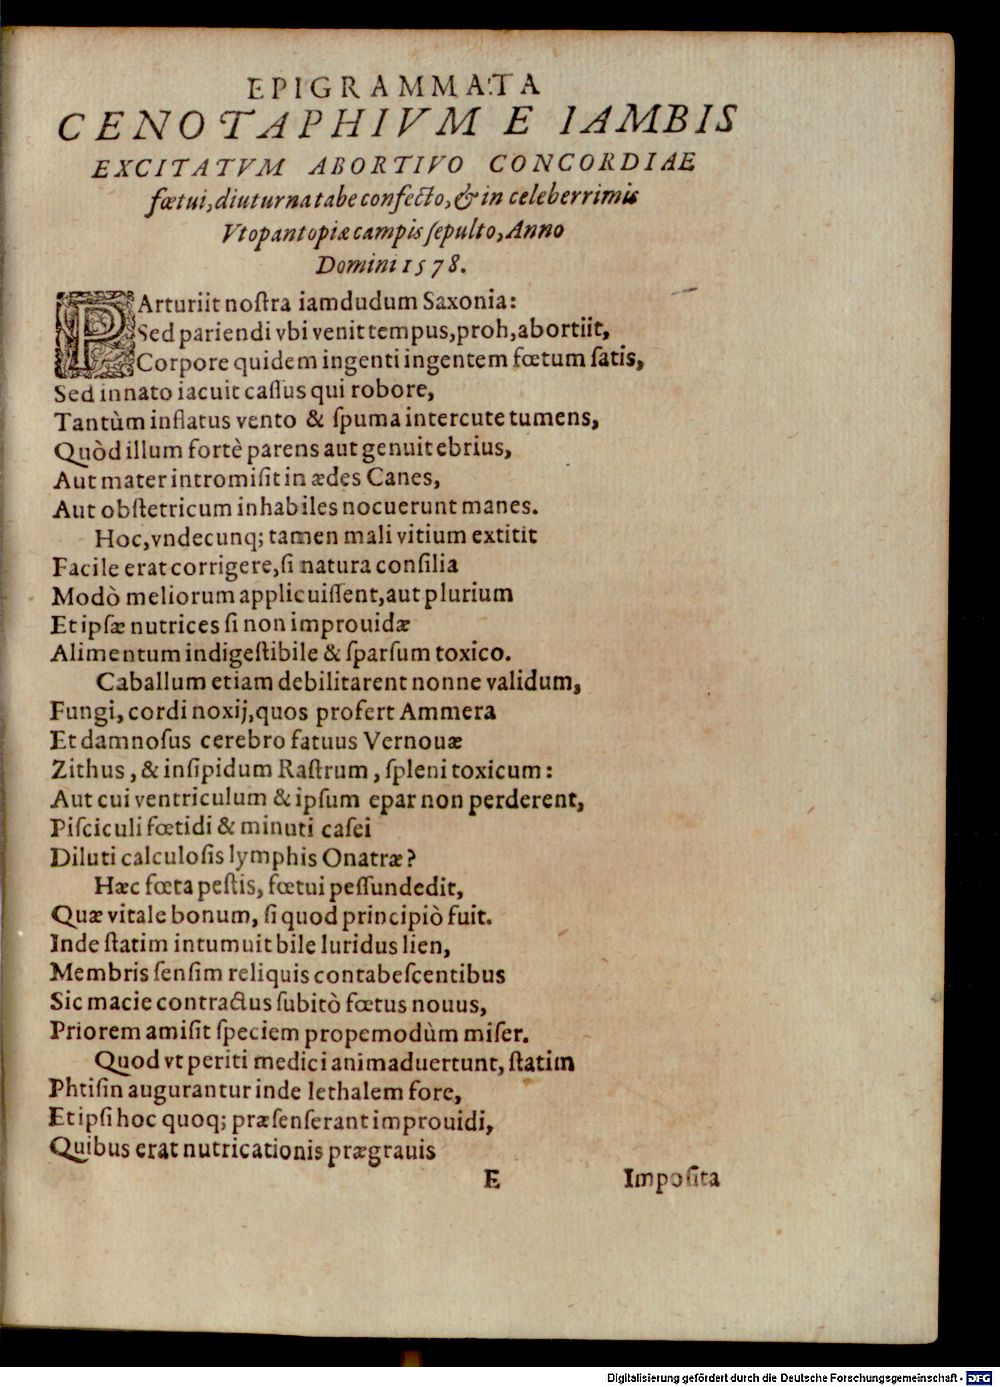 EPIGRAMMATA
CENOTAPHIVM E IAMBIS
EXCITATVM ABORTIVO CONCORDIAE
fœtui, diuturna tabe confecto, & in celeberrimis
Vtopantopiæ campis ſepulto, Anno
Domini 1578.
PArturiit noſtra iamdudum Saxonia:
Sed pariendi vbi venit tempus, proh, abortiit,
Corpore quidem ingenti ingentem fœtum ſatis,
Sed innato iacuit caſſus qui robore,
Tantùm inflatus vento & ſpuma intercute tumens,
Quòd illum fortè parens aut genuit ebrius,
Aut mater intromiſit in ædes Canes,
Aut obſtetricum inhabiles nocuerunt manes.
Hoc, vndecunq; tamen mali vitium extitit
Facile erat corrigere, ſi natura conſilia
Modò meliorum applicuiſſent, aut plurium
Et ipſæ nutrices ſi non improuidæ
Alimentum indigeſtibile & ſparſum toxico.
Caballum etiam debilitarent nonne validum,
Fungi, cordi noxij, quos profert Ammera
Et damnoſus cerebro fatuus Vernouæ
Zithus, & inſipidum Raſtrum, ſpleni toxicum:
Aut cui ventriculum & ipſum epar non perderent,
Piſciculi fœtidi & minuti caſei
Diluti calculoſis lymphis Onatræ?
Hæc fœta peſtis, fœtui peſſundedit,
Quæ vitale bonum, ſi quod principiò fuit.
Inde ſtatim intumuit bile luridus lien,
Membris ſenſim reliquis contabeſcentibus
Sic macie contractus ſubitò fœtus nouus,
Priorem amiſit ſpeciem propemodùm miſer.
Quod vt periti medici animaduertunt, ſtatim
Phtiſin augurantur inde lethalem fore,
Et ipſi hoc quoq; præſenſerant improuidi,
Quibus erat nutricationis prægrauis
E
Impoſita
Digitalisierung gefördert durch die Deutsche Forschungsgemeinschaft - DFG